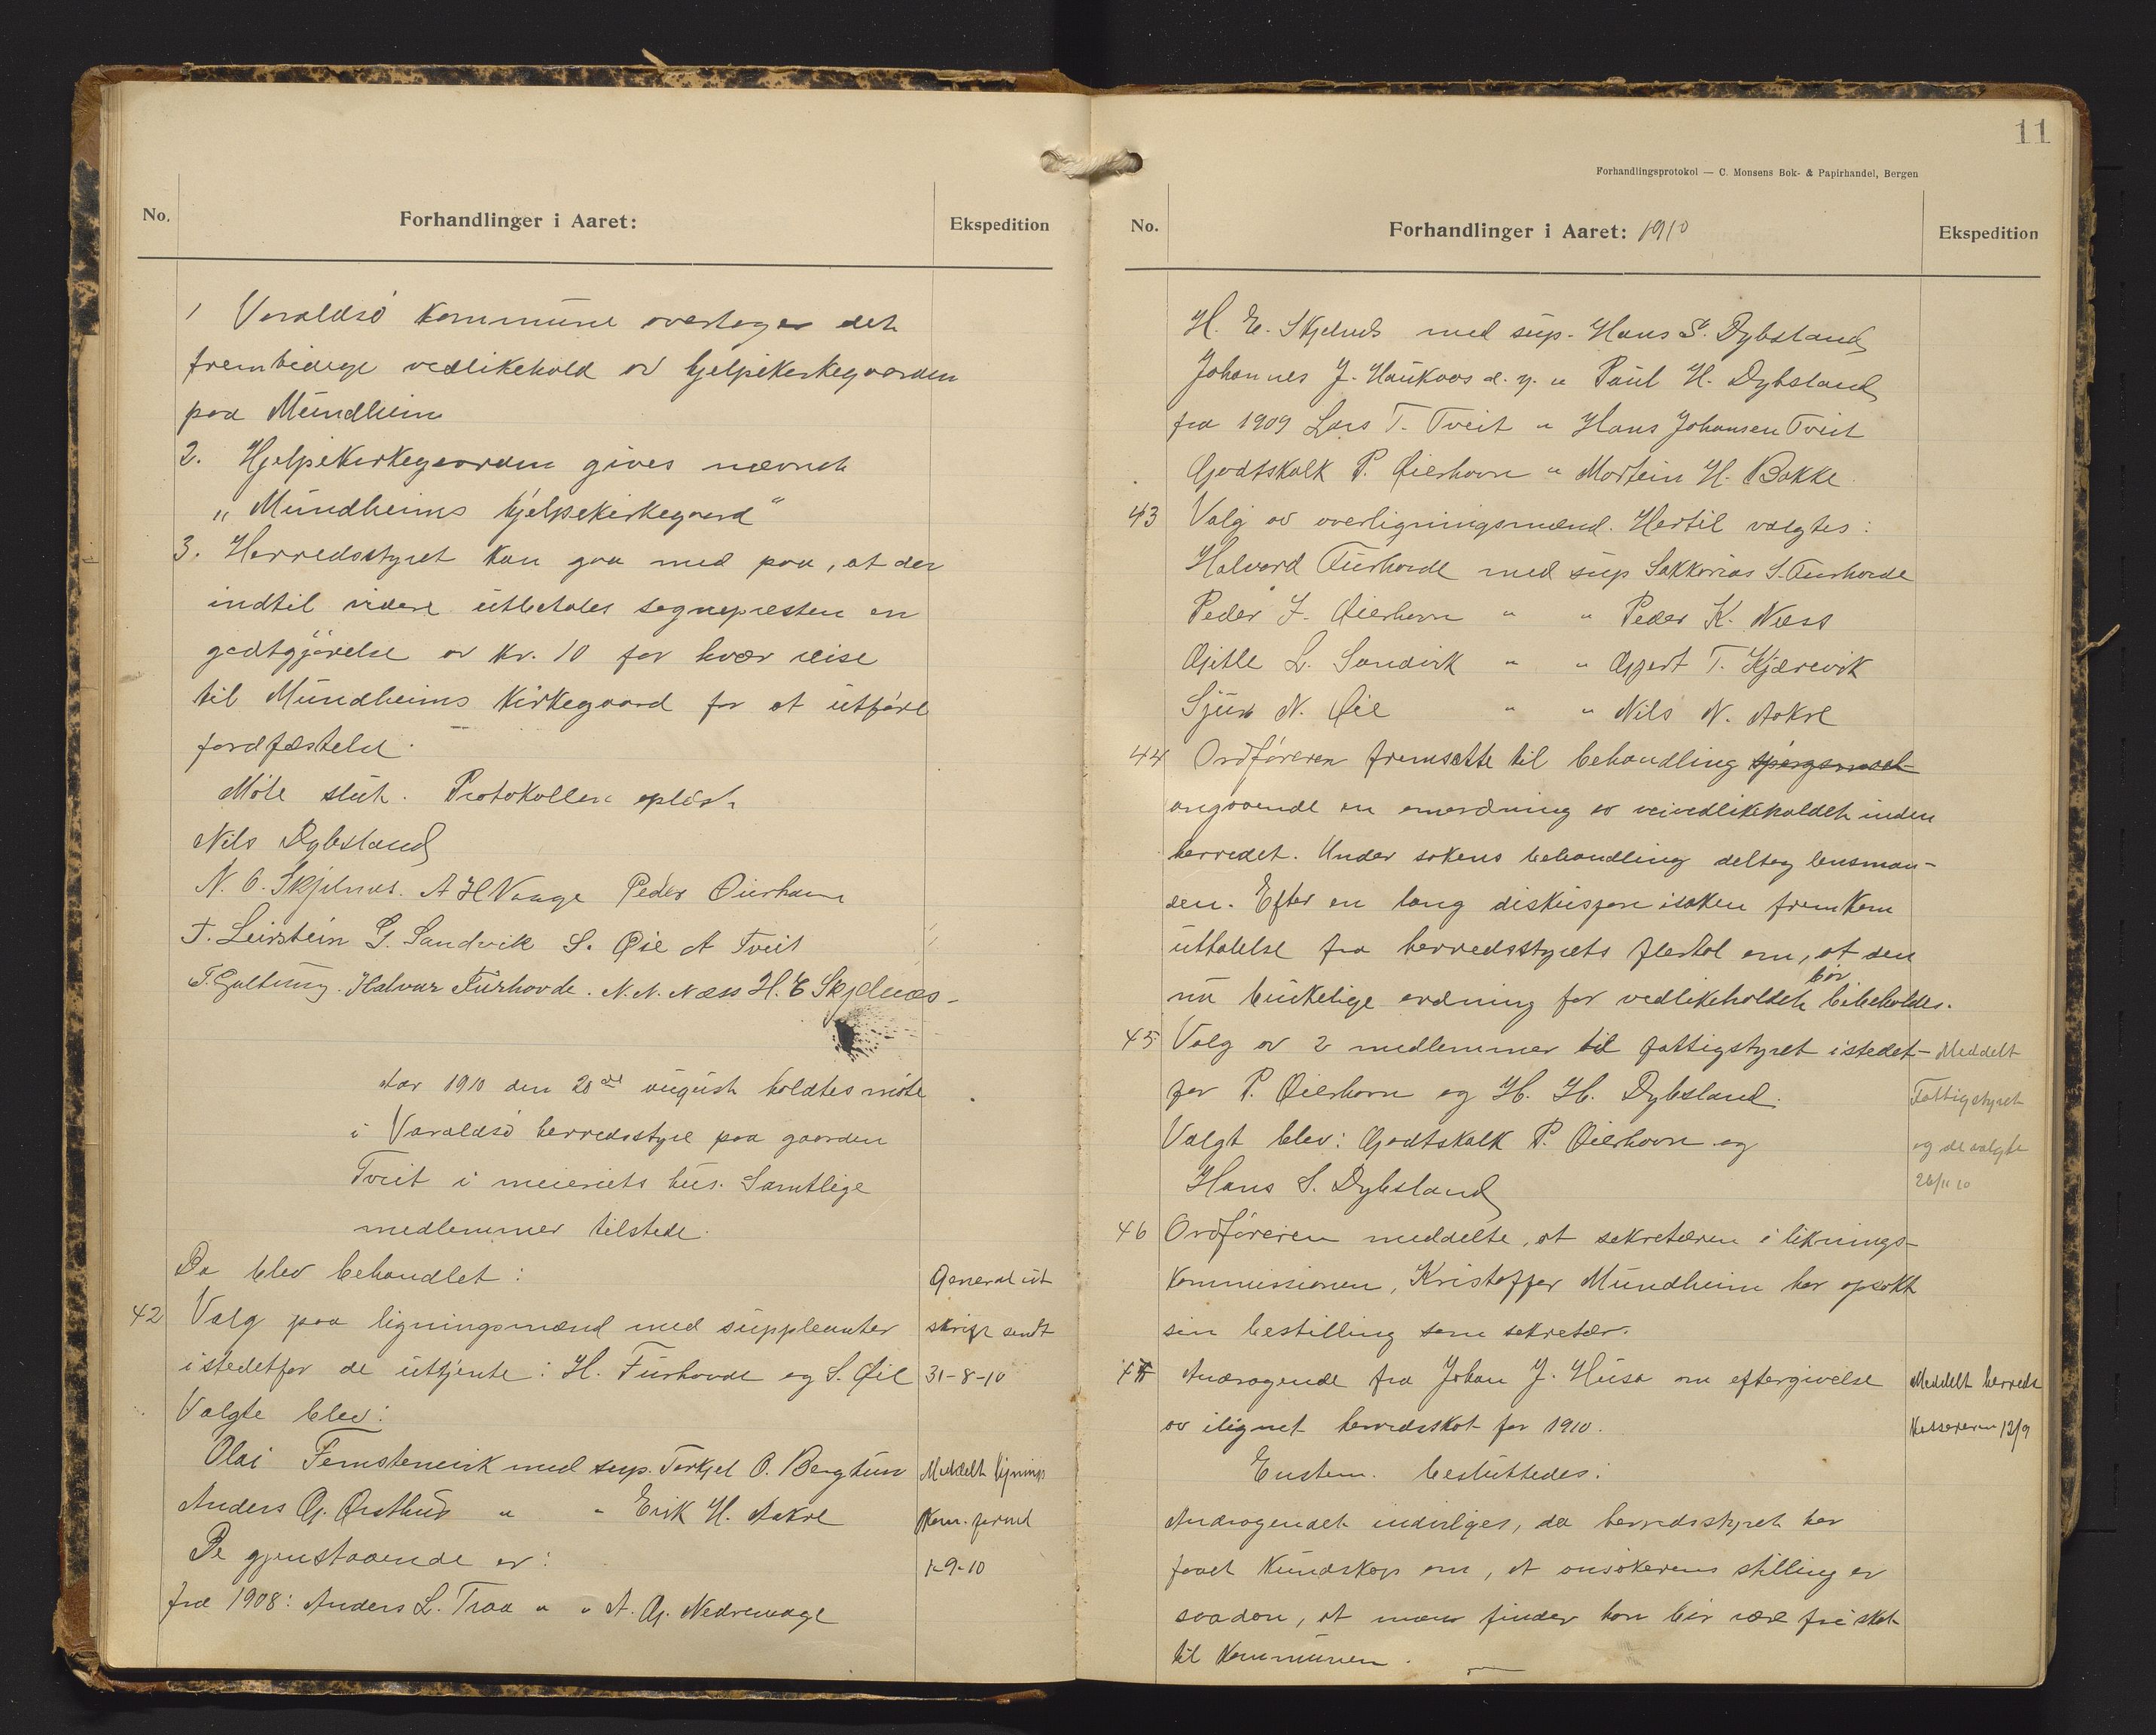 No.
Forhandlinger i Aaret:
Ekspedition
1 Varaldsö kommune overtager det
fremtidige vedlikehold av hjelpekirkegaarden
paa Mundheim
2. Hjelpekirkegaarden gives navnet
„Mundheims hjelpekirkegaard"
3. Herredsstyret kan gaa med paa, at der
indtil videre utbetales sognepresten en
godtgjörelse av kr. 10 for hver reise
til Mundheims kirkegaard for at utföre
jordfæstelse.
Möte slut. Protokollen oplest
Nils Dybsland
N. O. Skjelnes. A H Vaage Peder Øierhavn
T. Leirstein G. Sandvik S. Øie A Tveit
T. Galtung. Halvar Furhovde. N. N. Næss H. E Skjelnæs
Aar 1910 den 20de august holdtes möte
i Varaldsö herredsstyre paa gaarden
Tveit i meieriets hus. Samtlige
medlemmer tilstede.
Da blev behandlet:
Generalut
42 Valg paa ligningsmænd med suppleanter
skrift sendt
istedetfor de uttjente: H. Furhovde og S. Øie
31-8-10
Valgte blev:
Olai Femstenevik med sup. Torkjel O. Bergtun
Meddelt lignings
Anders G. Østhus " " Erik H. Aakre
kom. formd
De gjenstaaende er:
1-9-10
fra 1908: Anders L. Traa " " A. G. Nedrevaage
11
Forhandlingsprotokol — C. Monsens Bok- & Papirhandel, Bergen
No.
Forhandlinger i Aaret: 1910
Ekspedition
H. E. Skjelnes med sup. Hans S. Dybsland
Johannes J. Haukaas d. y. " Paul H. Dybsland
fra 1909 Lars T. Tveit " Hans Johansen Tveit
Godtskalk P. Øierhavn " Mostein H. Bakke
43 Valg av overligningsmænd. Hertil valgtes:
Halvard Furhovde med sup Sakkarias S. Furhovde
Peder J. Øierhavn " " Peder K. Næss
Gitle L. Sandvik " " Gjert T. Kjærevik
Sjur N. Øie " " Nils N. Aakre
44 Ordföreren fremsatte til behandling spörgsmaal
angaaende en omordning av veivedlikeholdet inden
herredet. Under sakens behandling deltog lensman-
den. Efter en lang diskusjon isaken fremkom
uttalelse fra herredsstyrets flertal om, at den
nu brukelige ordning for vedlikeholdet bör bibeholdes.
45 Valg av 2 medlemmer til fattigstyret istedet-
Meddelt
for P. Øierhavn og H. H. Dybsland.
Fattigstyret
Valgt blev: Godtskalk P. Øierhavn og
og de valgte
Hans S. Dybsland
26/11 10
46 Ordföreren meddelte, at sekretæren i liknings-
kommissionen, Kristoffer Mundheim har opsakt
sin bestilling som sekretær.
47 Andragende fra Johan J. Husa om eftergivelse
Meddelt herreds
av ilignet herredsskat for 1910.
kassereren 12/9
Enstem. besluttedes:
Andragendet indvilges, da herredsstyret har
faaet kundskap om, at ansökerens stilling er
saadan, at man finder han bör være fri skat
til kommunen.